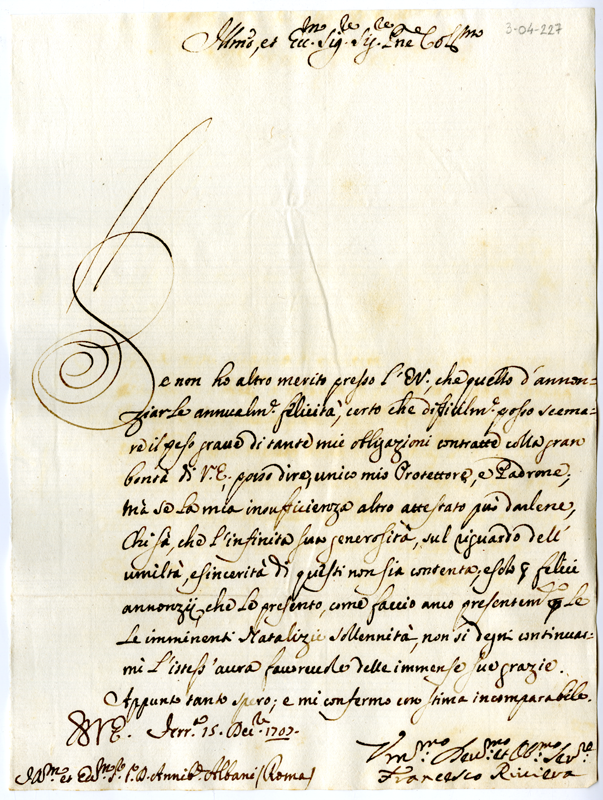 Illmo, et Ecc.mo Sig.re Sig.re Pne Colmo
3-04-227
Se non ho altro merito presso l'EV., che quello d'annon=
ziarLe annualm.e felicità, certo che difficilm.e posso scema=
re il peso grave di tante mie obligazioni contratte colla gran
bontà di V.E., posso dire, unico mio Protettore, e Padrone,
mà se La mia insufficienza altro attestato può darlene,
Chi sà, che L'infinita sua generosità, sul riguardo dell'
umiltà, e sincerità di questi non sia contenta, e solo p felici
annonzij, che Le presento, come faccio anco presentem.e p Le
Le imminenti Natalizie sollennità, non si degni continuar=
mi L'istess'aura favorevole delle immense sue grazie.
Appunto tanto spero; e mi confermo con stima incomparabile.
DVE. 15. Dec.re 1707.
Vm.mo Dev.mo et Obl.mo Ser.re
Francesco Riviera
Ill.mo et Ecc.mo Sig.r D. Annib.e Albani (Roma)